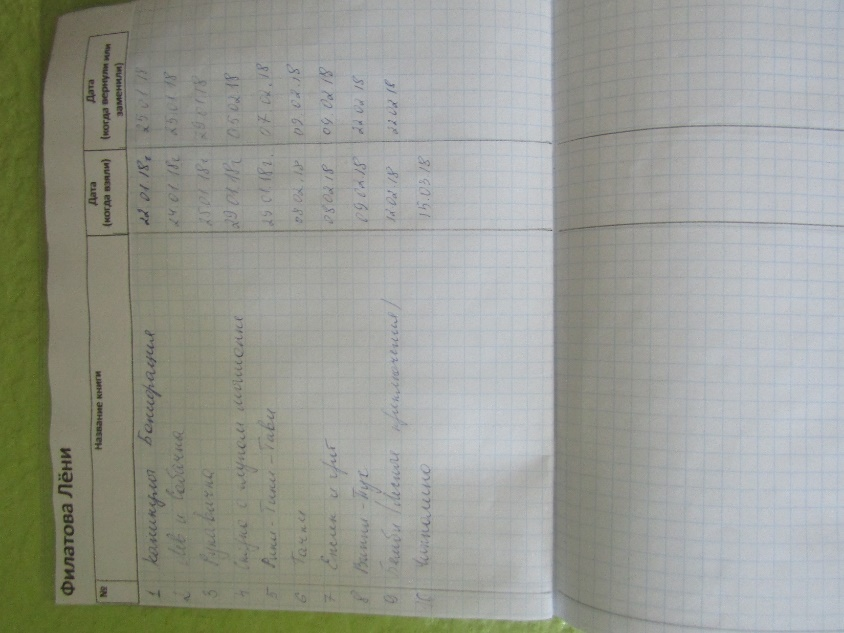 Филатова Лёни
№ Название книги Дата (когда взяли) Дата (когда вернули или заменили)
1 каникулы Бонифация 22.01.18г. 25 01 18
2 Лев и Собачка 24 01 18г. 25 01 18
3 Рукавичка 25 01 18г. 29 01 18
4 Сказка о глупом мышонке 29 01 18г. 05 02 18
5 Рики-Тики-Тави 29 01 18г. 07.02.18
6 Тачки 08 02.18 09.02.18
7 08 02 18 09 02 18
8 Винни-Пух 09.02.18 22 02 18
9 Бемби /Лесные приключения/ 12 02 18 22 02 18
10 Чиполлино 15.03 18